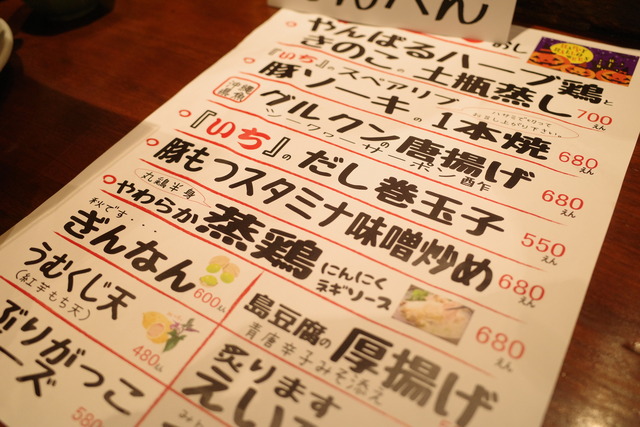 やんばるハーブ鶏と
きのこの土瓶蒸し 700えん
『いち』のスペアリブ
豚ソーキの1本焼 680えん
ハサミで切って
お召し上がり下さい。
沖縄県魚 グルクンの唐揚げ 680えん
シークヮーサーポン酢
『いち』のだし巻玉子 550えん
豚もつスタミナ味噌炒め 680えん
丸鶏半身
やわらか蒸鶏 にんにく
ネギソース 680えん
秋です・・・
ぎんなん 600えん
うむくじ天
(紅芋もち天) 480えん
島豆腐の厚揚げ
青唐辛子みそ添え
ぶりがっこ
ーズ 580
炙ります
えい